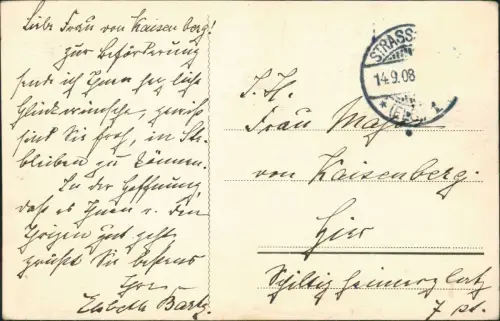 Liebe Frau von Kaisenberg!
Zur Beförderung
sende ich Ihnen herzliche
Glückwünsche, gewiss
sind Sie froh, in Str.
bleiben zu können.
In der Hoffnung,
dass es Ihnen u. den
Ihrigen gut geht
grüsst Sie bestens
Ihre
Elsbeth Bartz.
STRASS
14.9.08
1
I. H.
Frau Major
von Kaisenberg.
Hier
Schiltigheimerplatz
7 pt.